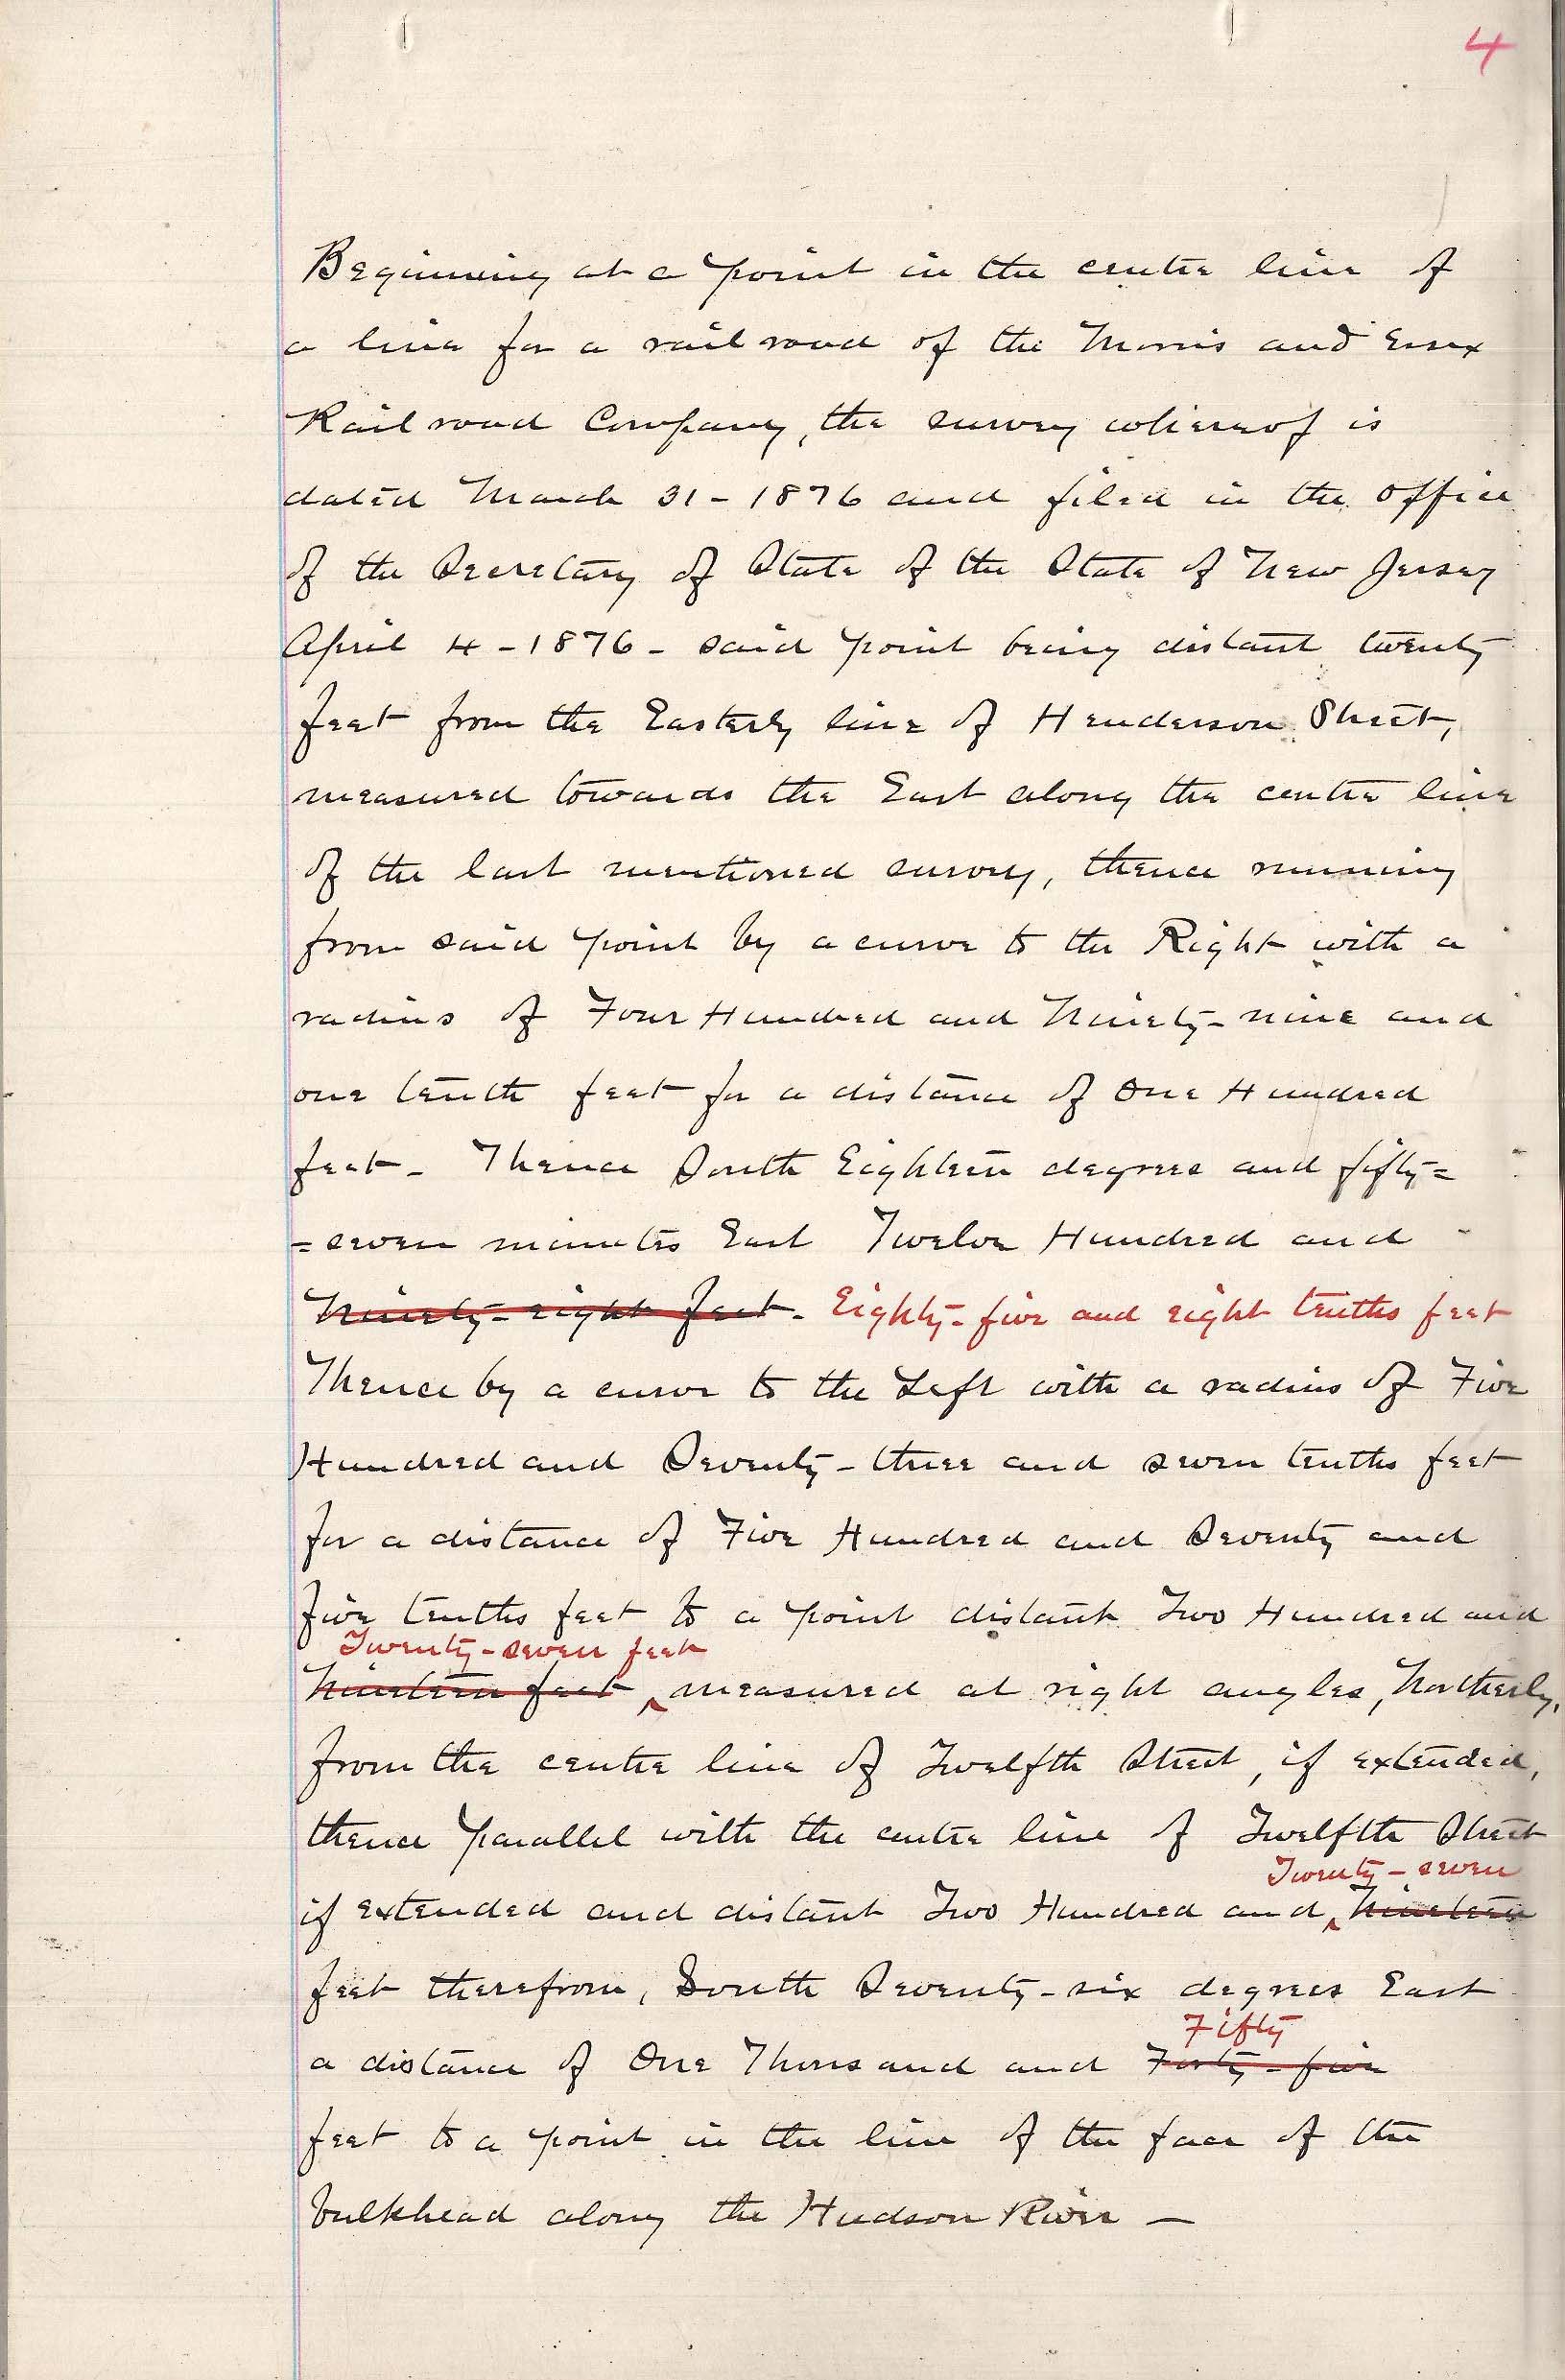 4
Beginning at a point in the centre line of
a line for a railroad of the Morris and Essex
Railroad Company, the survey whereof is
dated March 31 - 1876 and filed in the office
of the Secretary of State of the State of New Jersey
April 4 - 1876 - said point being distant twenty
feet from the Easterly line of Henderson Street,
measured towards the East along the centre line
of the last mentioned survey, thence running
from said point by a curve to the Right with a
radius of Four Hundred and Ninety-nine and
one tenth feet for a distance of One Hundred
feet - Thence South Eighteen degrees and fifty=
=seven minutes East Twelve Hundred and
Ninety-eight feet. Eighty-five and eight tenths feet
Thence by a curve to the Left with a radius of Five
Hundred and Seventy-three and seven tenths feet
for a distance of Five Hundred and Seventy and
five tenths feet to a point distant Two Hundred and
Twenty-seven feet
Nineteen feet ‸ measured at right angles, Northerly,
from the centre line of Twelfth Street, if extended,
thence parallel with the centre line of Twelfth Street
Twenty-seven
if extended and distant Two Hundred and ‸ Nineteen
feet therefrom, South Seventy-six degrees East
Fifty
a distance of One Thousand and Forty-five
feet to a point in the line of the face of the
bulkhead along the Hudson River —